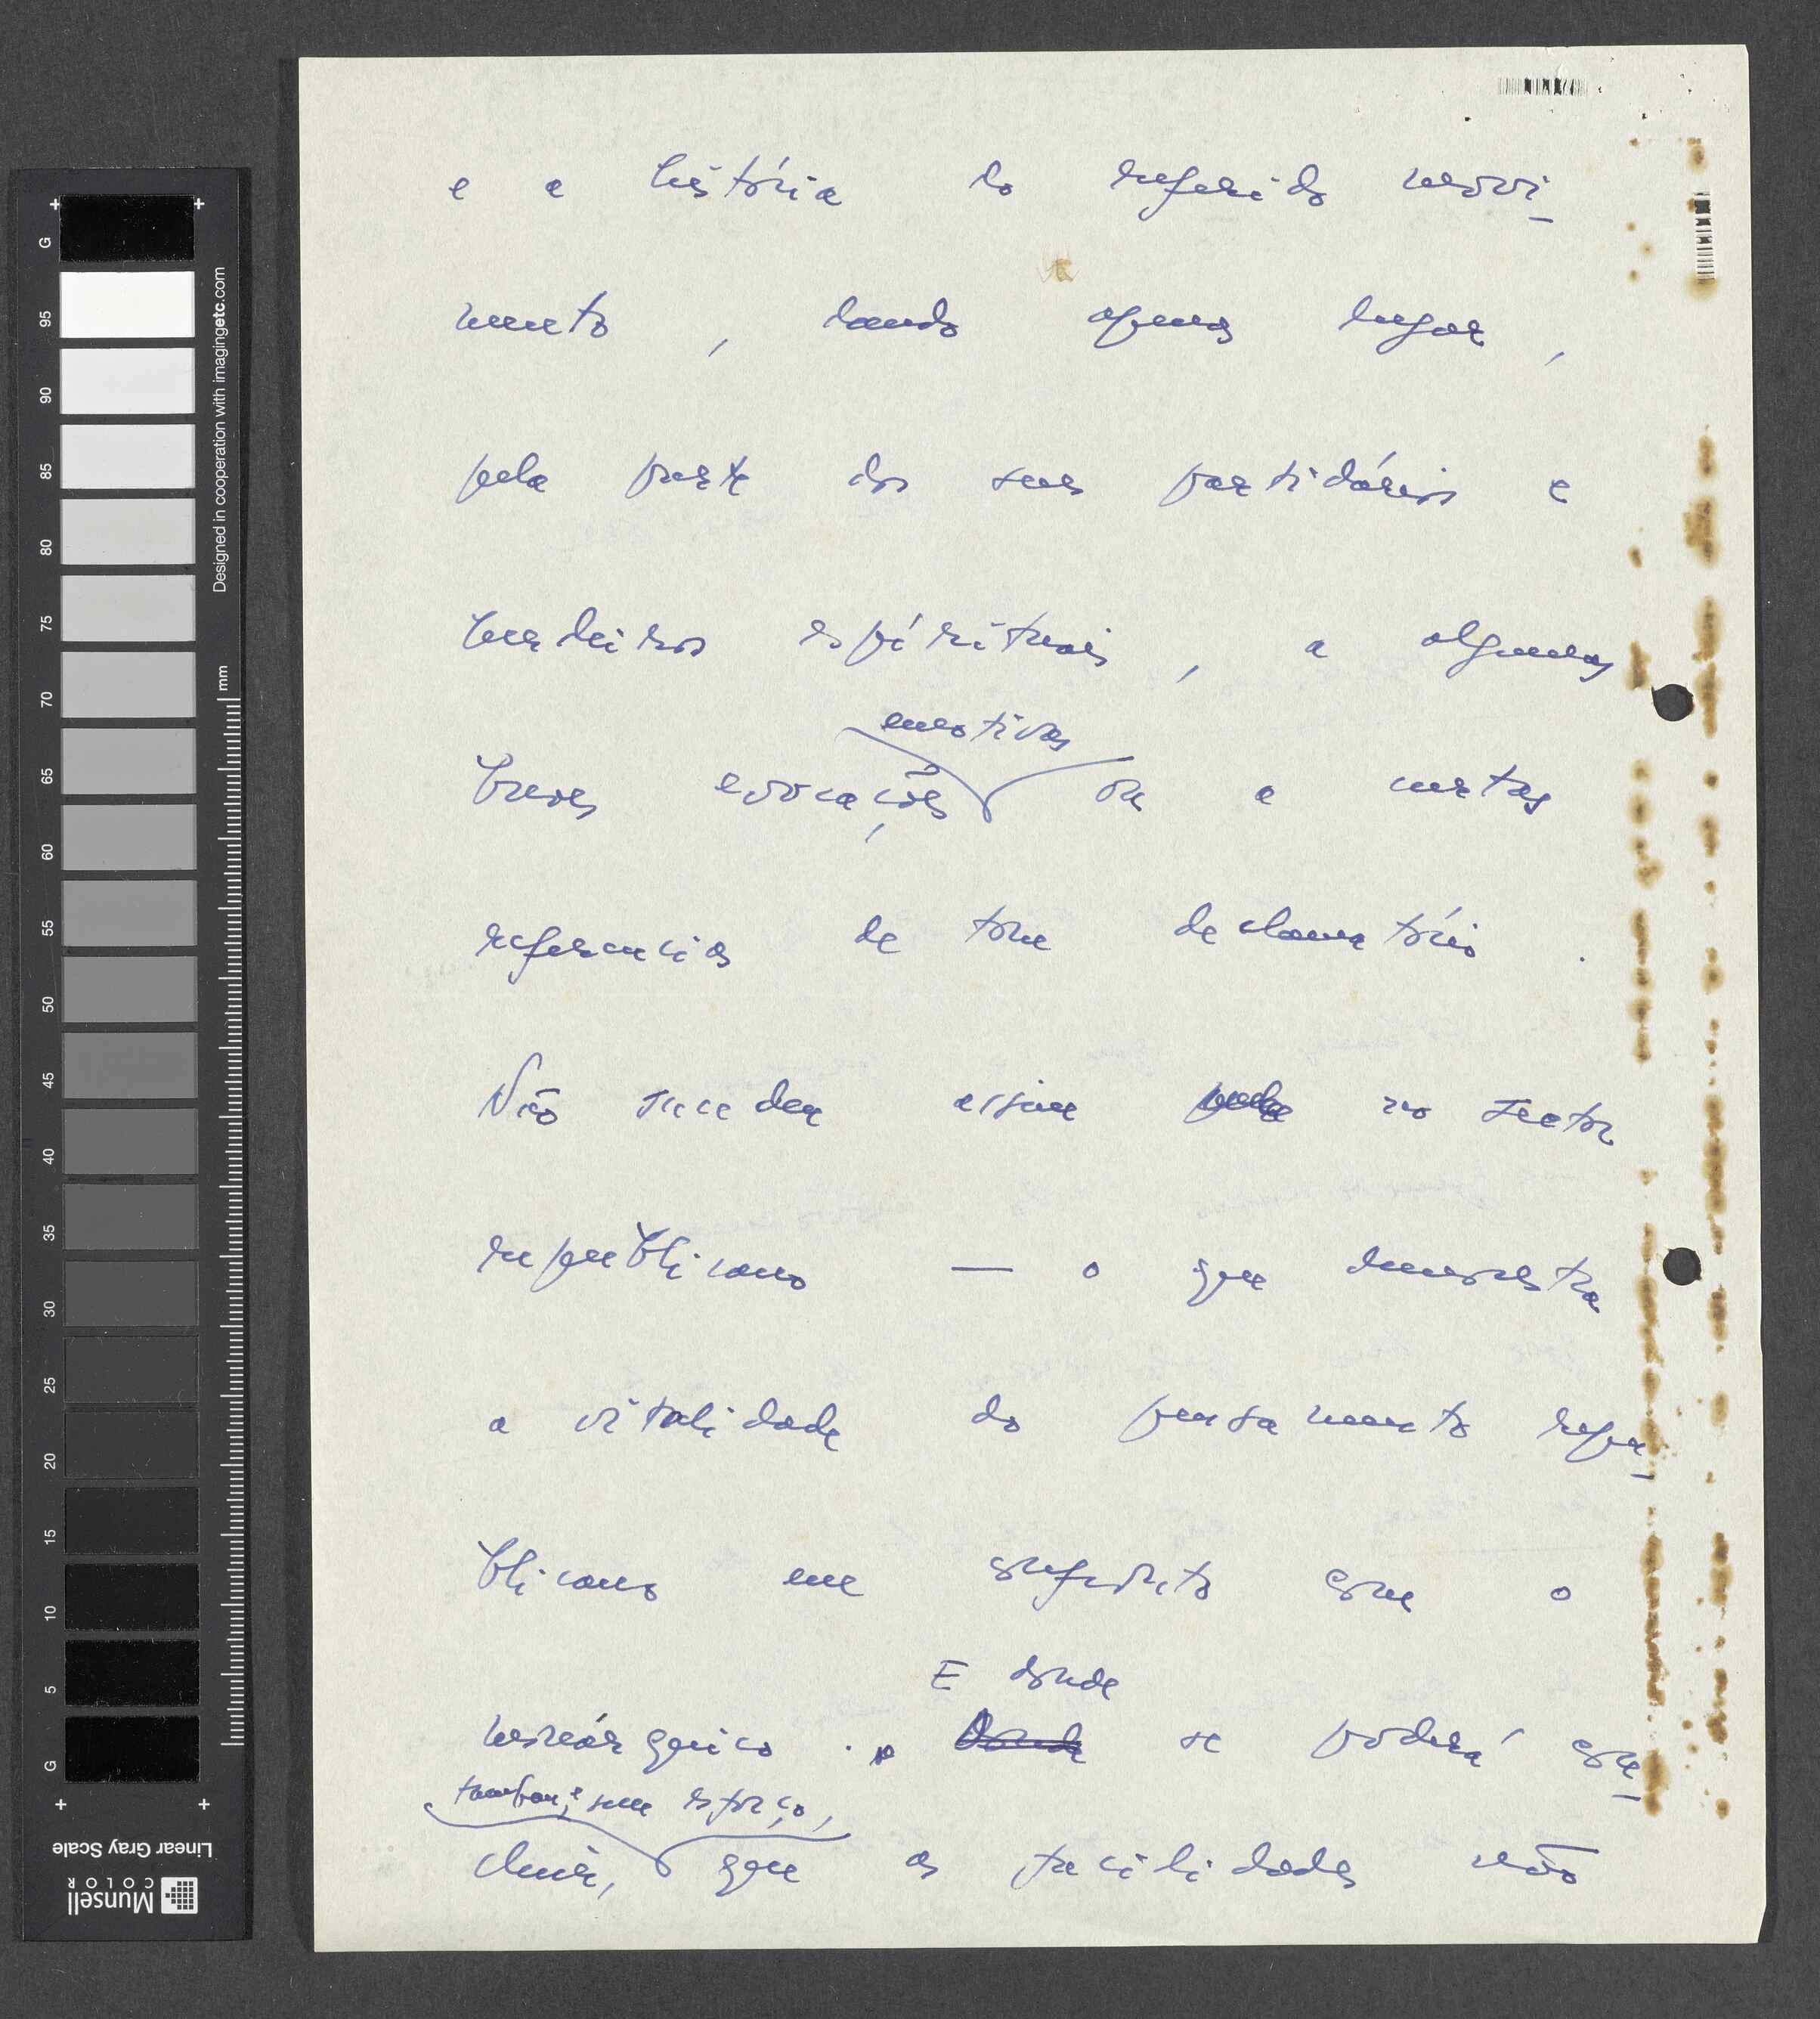 e a história do referido movi-
mento, dando apenas lugar,
pela parte dos seus partidários e
herdeiros espirituais, a algumas
emotivas
breves evocações ou a certas
referencias de tom declamatório.
Não sucedeu assim no sector
republicano — o que demonstra
a vitalidade do pensamento repu-
blicano em confronto com o
E donde
monárquico. Donde se poderá con-
também, sem esforço,
cluir, que as facilidades não
Designed in cooperation with imagingetc.com
mm
G
95
90
85
80
75
70
65
60
55
50
45
40
35
30
25
20
15
10
5
G
Linear Gray Scale
Munsell
COLOR